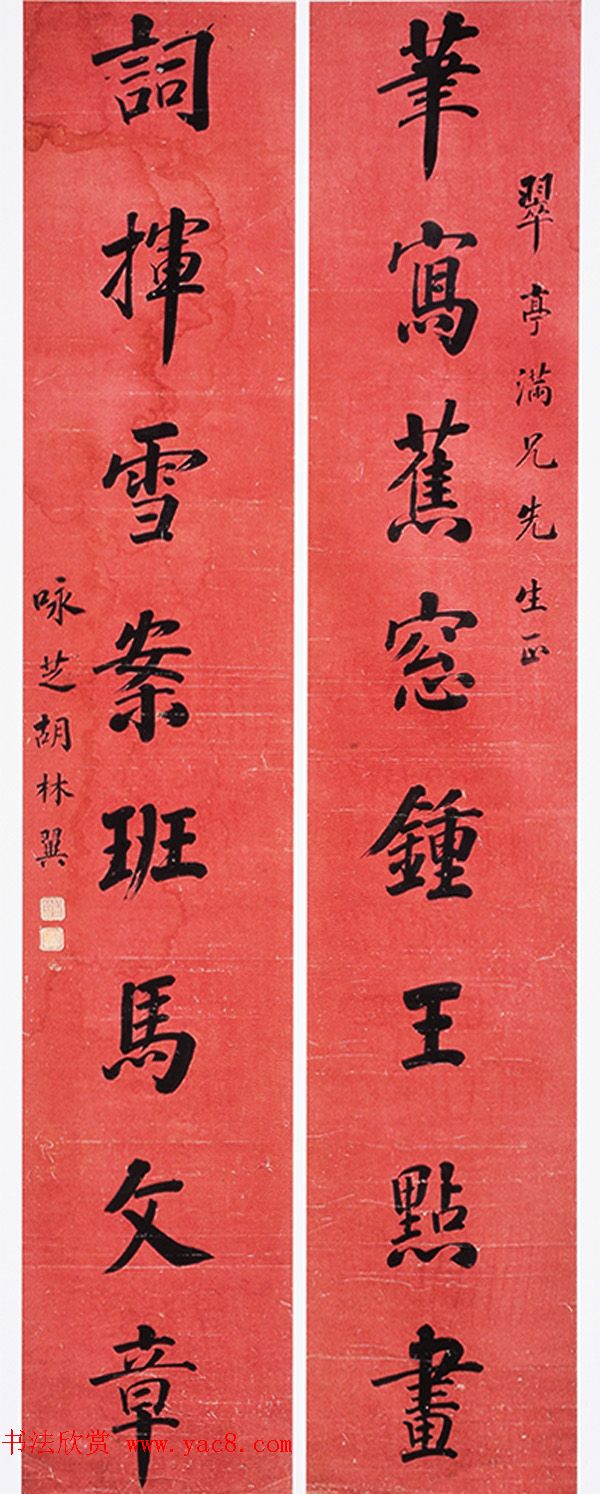 翠亭满兄先生正
筆寫蕉窓鍾王點畫
詞揮雪案班馬文章
咏芝胡林翼
书法欣赏 www.yac8.com